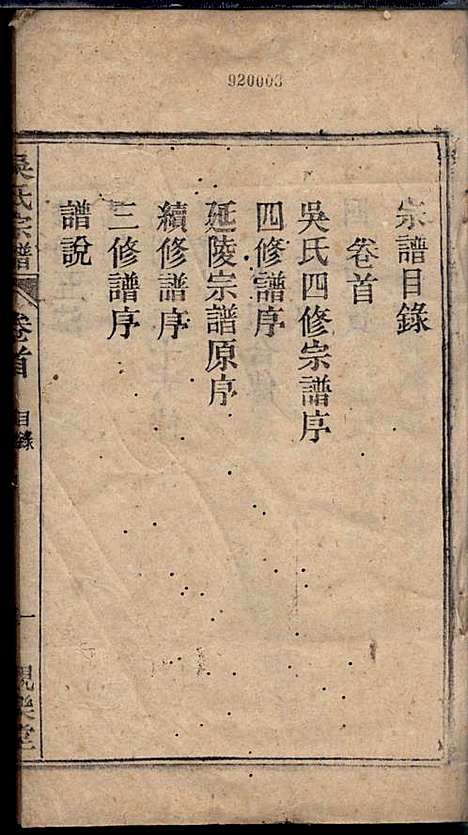 920003
宗譜目錄
卷首
吳氏四修宗譜序
四修譜序
延陵宗譜原序
續修譜序
三修譜序
譜說
吳氏宗譜
卷首
目錄
一